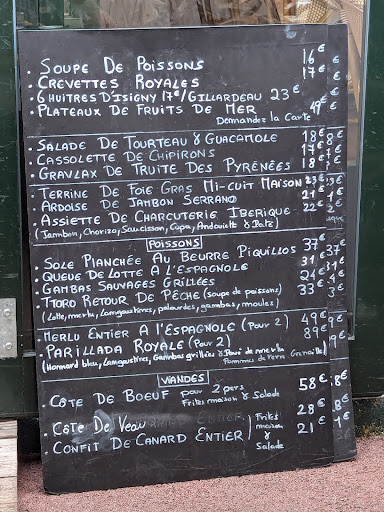 . SOUPE DE POISSONS 16€
. CREVETTES ROYALES 17€
. 6 HUITRES D'ISIGNY 17€/GILLARDEAU 23€
. PLATEAUX DE FRUITS DE MER 49€
Demandez la Carte
. SALADE DE TOURTEAU & GUACAMOLE 18€
. CASSOLETTE DE CHIPIRONS 17€
. GRAVLAX DE TRUITE DES PYRÉNÉES 18€
. TERRINE DE FOIE GRAS MI-CUIT MAISON 23€
. ARDOISE DE JAMBON SERRANO 21€
. ASSIETTE DE CHARCUTERIE IBERIQUE 22€
(Jambon, Chorizo, Saucisson, Copa, Andouille & Paté)
POISSONS
. SOLE PLANCHÉE AU BEURRE PIQUILLOS 37€
. QUEUE DE LOTTE A L'ESPAGNOLE 31€
. GAMBAS SAUVAGES GRILLÉES 24€
. TTORO RETOUR DE PÊCHE (soupe de poissons) 33€
(Lotte, merlu, Langoustines, palourdes, gambas, moules)
. MERLU ENTIER A l'ESPAGNOLE (Pour 2) 49€
. PARILLADA ROYALE (Pour 2) 89€
(Hommard bleu, Langoustines, Gambas grillées & Pavé de merlu
Pommes de Terre Grenaille)
VIANDES
. CÔTE DE BOEUF pour 2 pers 58€
Frites maison & Salade
. CÔTE DE VEAU 28€
. CONFIT DE CANARD ENTIER 21€
Frites
maison
&
Salade